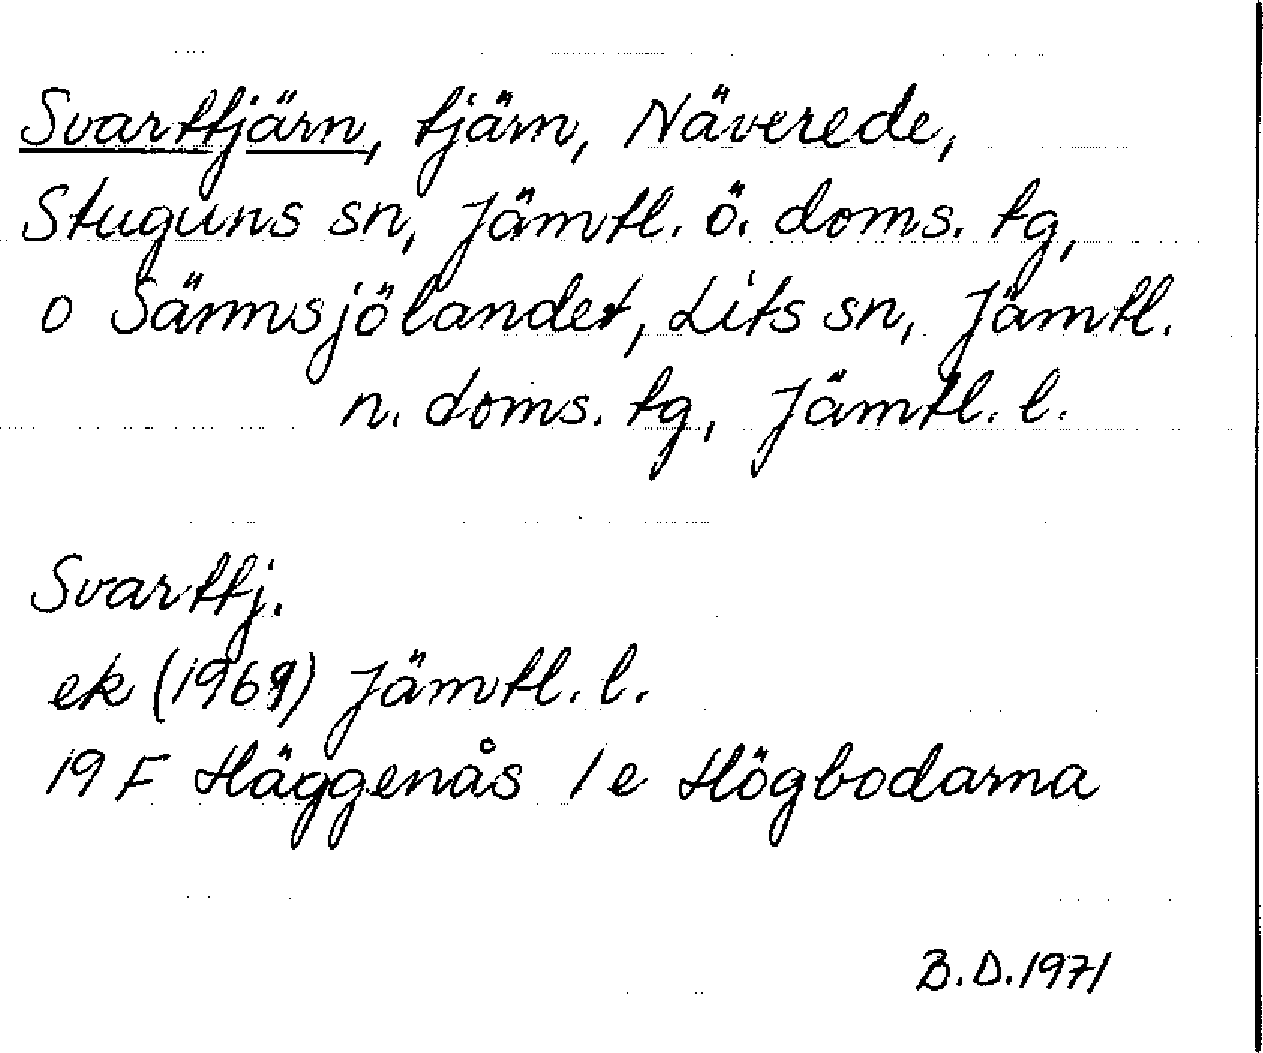 Svarttjärn, tjärn, Näverede,
Stuguns sn, Jämtl. ö. doms. tg,
o Sännsjölandet, Lits sn, Jämtl.
n. doms. tg, Jämtl. l.
Svarttj.
ek (1969) Jämtl. l.
19 F Häggenås 1 e Högbodarna
B.D. 1971